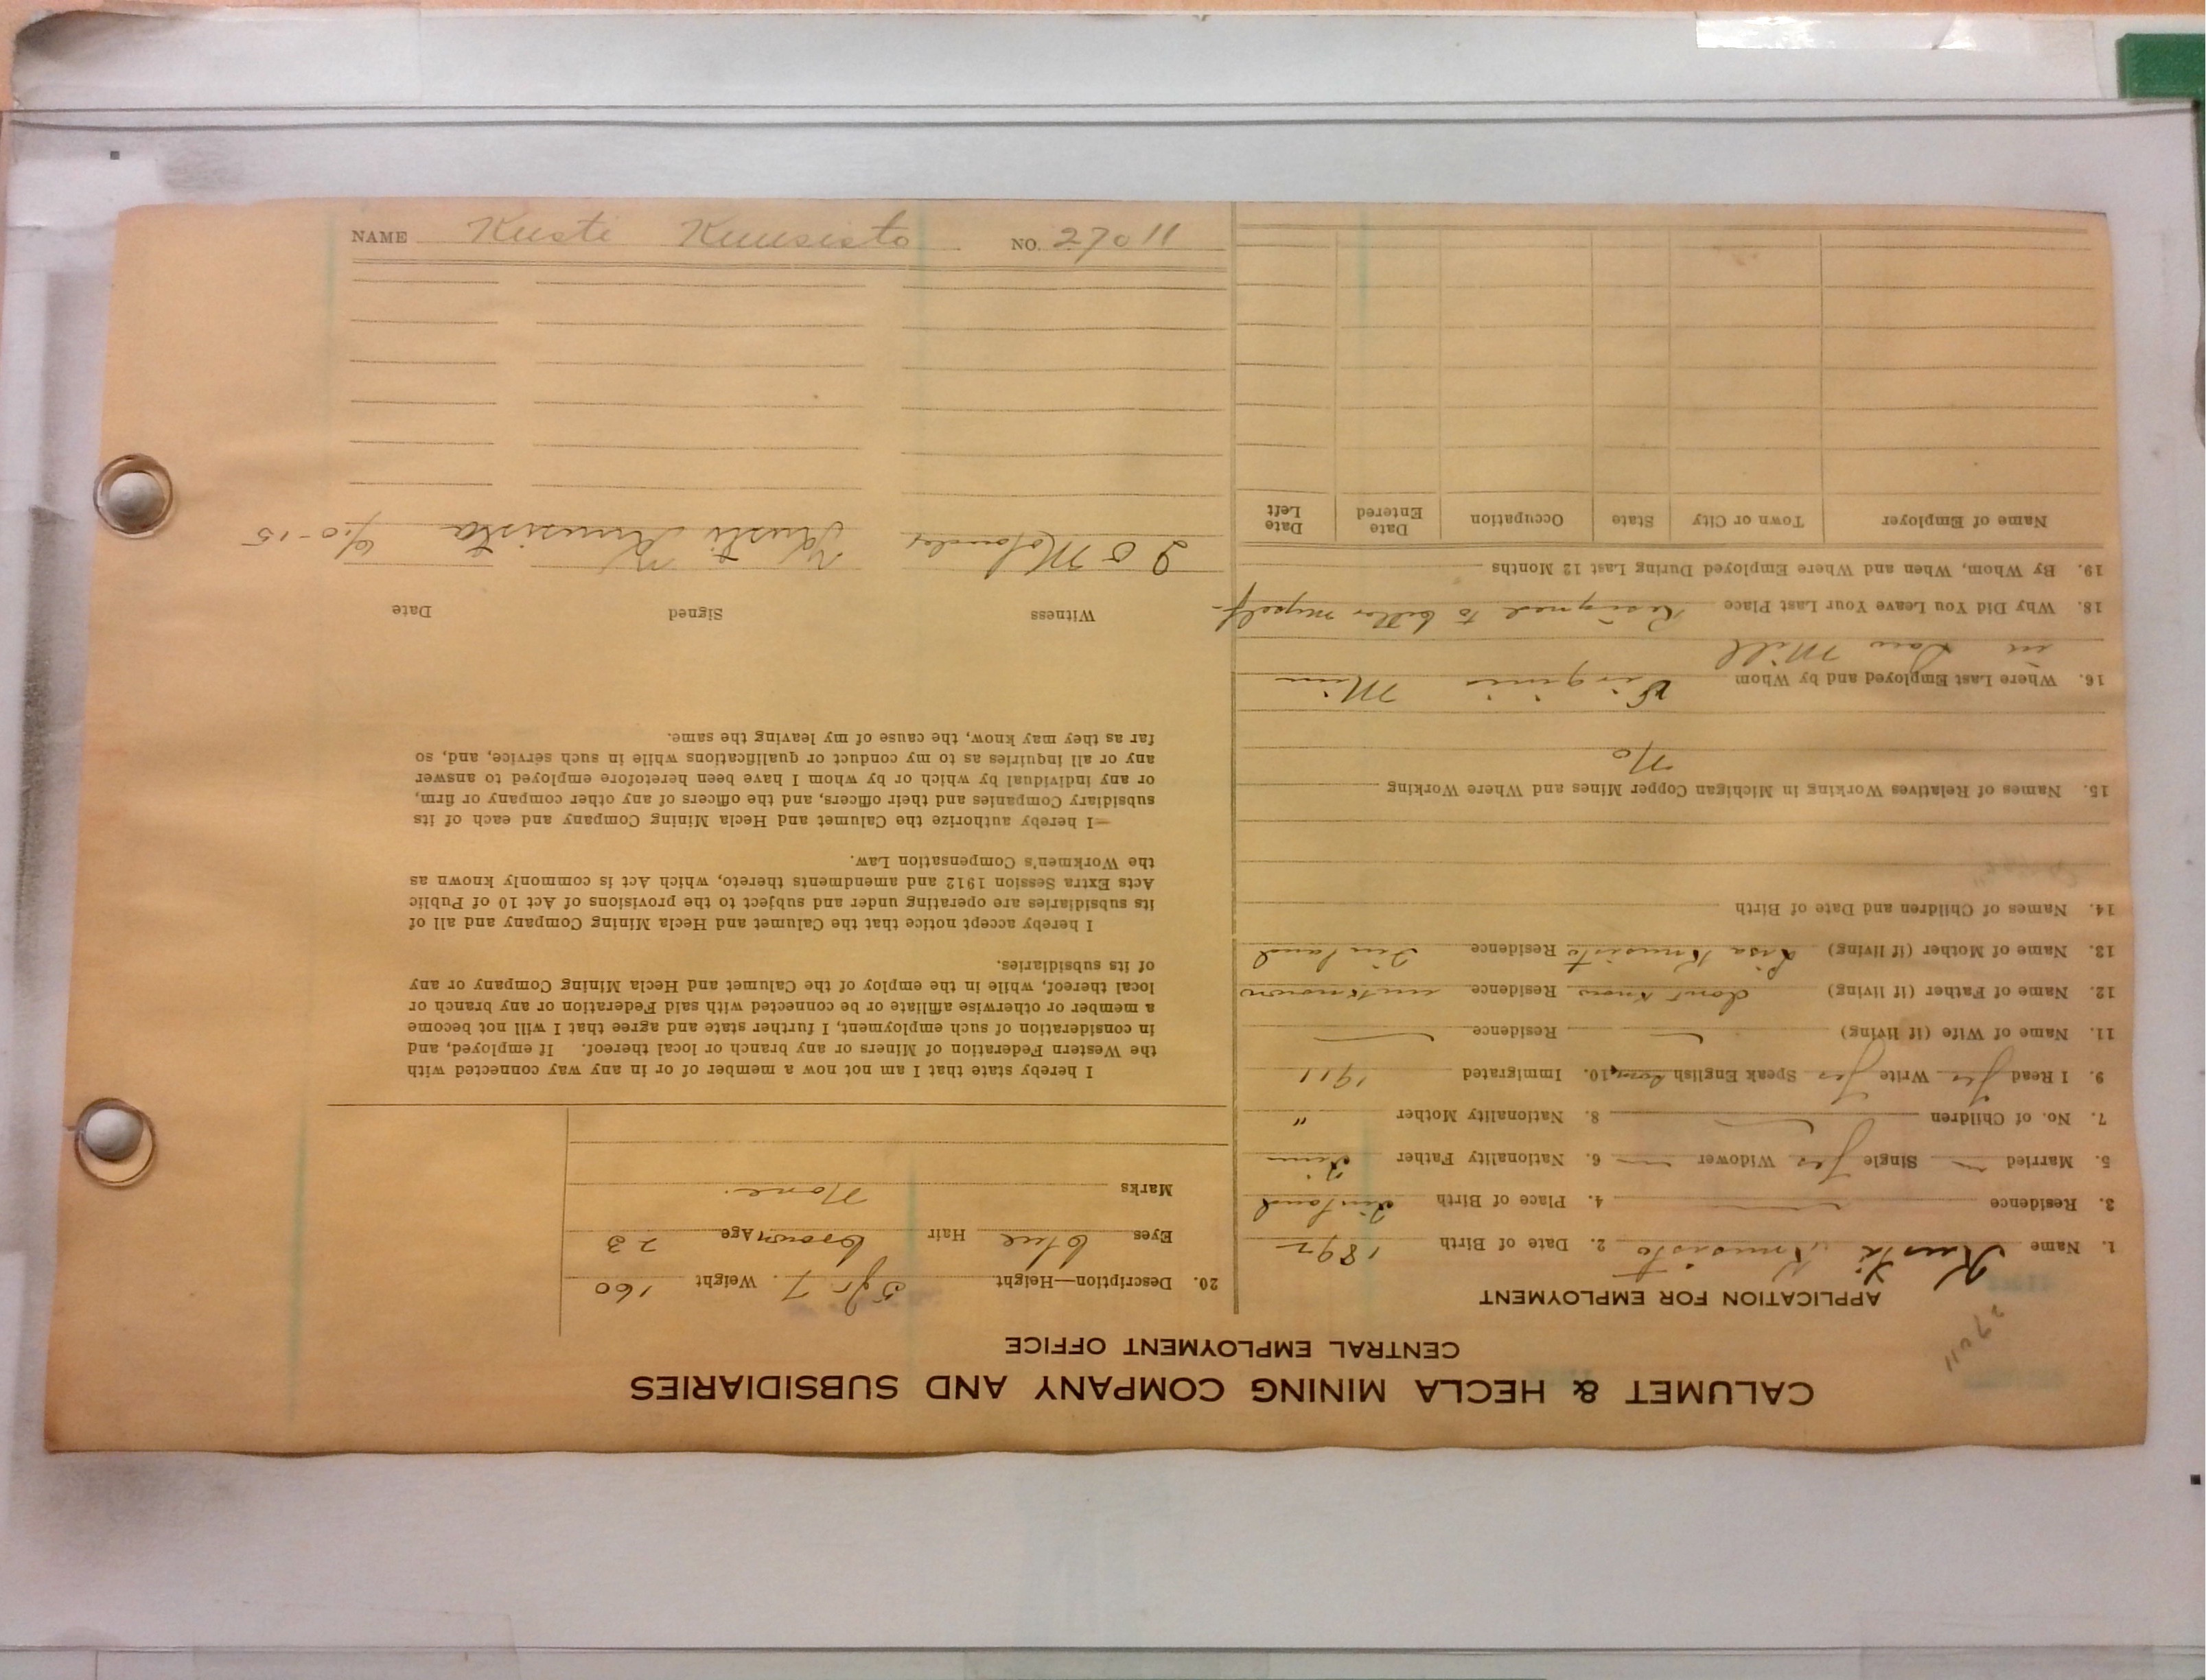 CALUMET & HECLA MINING COMPANY AND SUBSIDIARIES
CENTRAL EMPLOYMENT OFFICE
27011
APPLICATION FOR EMPLOYMENT
1. Name Kusti Kuusisto 2. Date of Birth 1892
3. Residence 4. Place of Birth Finland
5. Married Single yes Widower 6. Nationality Father Finn
7. No. of Children 8. Nationality Mother "
9. I Read yes Write yes Speak English 10. Immigrated 1911
11. Name of Wife (if living) Residence
12. Name of Father (if living) dont know Residence unknown
13. Name of Mother (if living) Lisa Kuusisto Residence Finland
14. Names of Children and Date of Birth
15. Names of Relatives Working in Michigan Copper Mines and Where Working
No
16. Where Last Employed and by Whom Virginia Minn
in Saw Mill
18. Why Did You Leave Your Last Place Resigned to better myself
19. By Whom, When and Where Employed During Last 12 Months
Name of Employer Town or City State Occupation Date Entered Date Left
20. Description—Height 5 ft 7 Weight 160
Eyes blue Hair brown Age 23
Marks None.
I hereby state that I am not now a member of or in any way connected with
the Western Federation of Miners or any branch or local thereof. If employed, and
in consideration of such employment, I further state and agree that I will not become
a member or otherwise affiliate or be connected with said Federation or any branch or
local thereof, while in the employ of the Calumet and Hecla Mining Company or any
of its subsidiaries.
I hereby accept notice that the Calumet and Hecla Mining Company and all of
its subsidiaries are operating under and subject to the provisions of Act 10 of Public
Acts Extra Session 1912 and amendments thereto, which Act is commonly known as
the Workmen's Compensation Law.
I hereby authorize the Calumet and Hecla Mining Company and each of its
subsidiary Companies and their officers, and the officers of any other company or firm,
or any individual by which or by whom I have been heretofore employed to answer
any or all inquiries as to my conduct or qualifications while in such service, and, so
far as they may know, the cause of my leaving the same.
Witness Signed Date
Molander Kusti Kuusisto 6/10-15
NAME Kusti Kuusisto NO. 27011